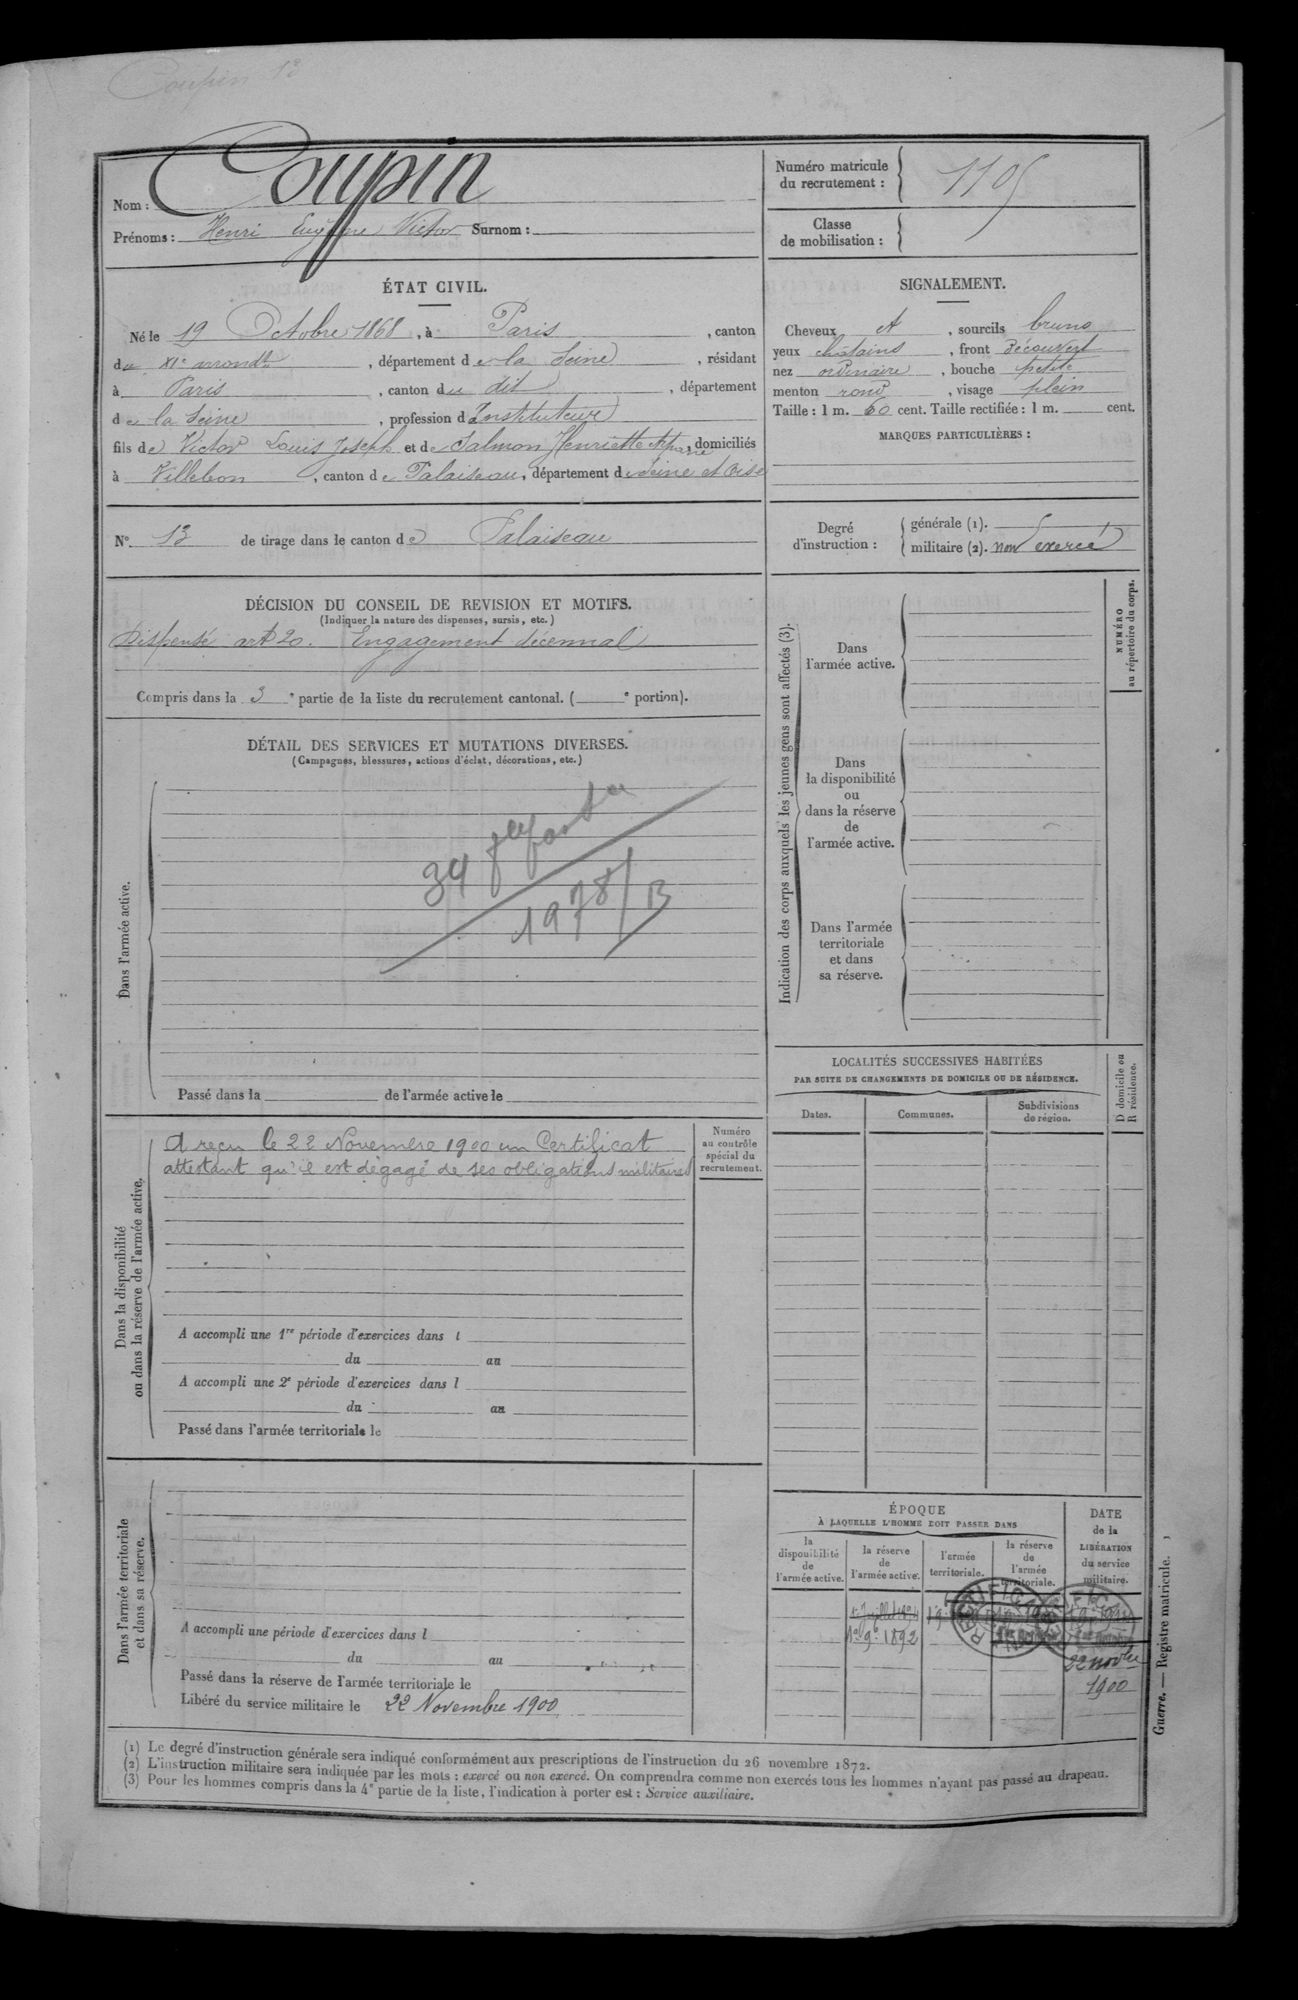 Coupin
Nom :
Prénoms : Henri Eugène Victor Surnom :
Numéro matricule
du recrutement : 1105
Classe
de mobilisation :
ÉTAT CIVIL.
Né le 19 Octobre 1868, à Paris, canton
du XIe arrondt, département de la Seine, résidant
à Paris, canton du dit, département
de la Seine, profession d'Instituteur
fils de Victor Louis Joseph et de Salmon Henriette Maria, domiciliés
à Villebon, canton de Palaiseau, département de Seine et Oise
N° 13 de tirage dans le canton de Palaiseau
SIGNALEMENT.
Cheveux et, sourcils bruns
yeux châtains, front Découvert
nez ordinaire, bouche petite
menton rond, visage plein
Taille : 1 m. 60 cent. Taille rectifiée : 1 m. cent.
MARQUES PARTICULIÈRES :
Degré
d'instruction :
générale (1).
militaire (2). non exercé
DÉCISION DU CONSEIL DE REVISION ET MOTIFS.
(Indiquer la nature des dispenses, sursis, etc.)
Dispensé art 20. Engagement décennal
Compris dans la 3e partie de la liste du recrutement cantonal. ( e portion).
DÉTAIL DES SERVICES ET MUTATIONS DIVERSES.
(Campagnes, blessures, actions d'éclat, décorations, etc.)
Dans l'armée active.
34
1978/B
Passé dans la de l'armée active le
Indication des corps auxquels les jeunes gens sont affectés (3).
Dans
l'armée active.
Dans
la disponibilité
ou
dans la réserve
de
l'armée active.
Dans l'armée
territoriale
et dans
sa réserve.
NUMÉRO
au répertoire du corps.
Dans la disponibilité
ou dans la réserve de l'armée active.
A reçu le 22 Novembre 1900 un Certificat
attestant qu'il est dégagé de ses obligations militaires
Numéro
au contrôle
spécial du
recrutement.
A accompli une 1re période d'exercices dans l
du au
A accompli une 2e période d'exercices dans l
du au
Passé dans l'armée territoriale le
LOCALITÉS SUCCESSIVES HABITÉES
PAR SUITE DE CHANGEMENTS DE DOMICILE OU DE RÉSIDENCE.
Dates.
Communes.
Subdivisions
de région.
D domicile ou
R résidence.
Dans l'armée territoriale
et dans sa réserve.
A accompli une période d'exercices dans l
du au
Passé dans la réserve de l'armée territoriale le
Libéré du service militaire le 22 Novembre 1900
ÉPOQUE
À LAQUELLE L'HOMME DOIT PASSER DANS
la
disponibilité
de
l'armée active.
la réserve
de
l'armée active.
l'armée
territoriale.
la réserve
de
l'armée
territoriale.
DATE
de la
LIBÉRATION
du service
militaire.
1892
22 novbre
1900
(1) Le degré d'instruction générale sera indiqué conformément aux prescriptions de l'instruction du 26 novembre 1872.
(2) L'instruction militaire sera indiquée par les mots : exercé ou non exercé. On comprendra comme non exercés tous les hommes n'ayant pas passé au drapeau.
(3) Pour les hommes compris dans la 4e partie de la liste, l'indication à porter est : Service auxiliaire.
Guerre. — Registre matricule.